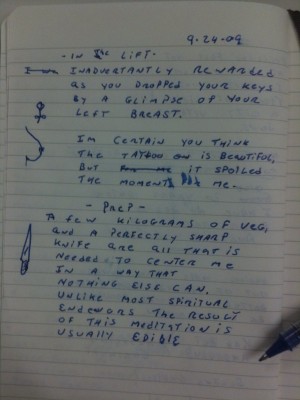 9-24-09
-IN THE LIFT-
INADVERTANTLY REWARDED
AS YOU DROPPED YOUR KEYS
BY A GLIMPSE OF YOUR
LEFT BREAST.
IM CERTAIN YOU THINK
THE TATTOO IS BEAUTIFUL,
BUT IT SPOILED
THE MOMENT ME.
- PREP -
A FEW KILOGRAMS OF VEG,
AND A PERFECTLY SHARP
KNIFE ARE ALL THAT IS
NEEDED TO CENTER ME
IN A WAY THAT
NOTHING ELSE CAN.
UNLIKE MOST SPIRITUAL
ENDEVORS THE RESULT
OF THIS MEDITATION IS
USUALLY EDIBLE